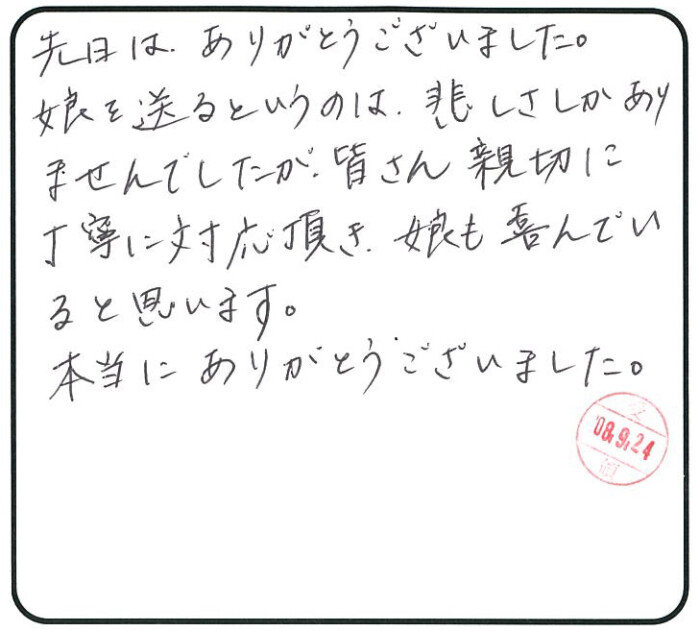 先日は、ありがとうございました。
娘を送るというのは、悲しさしかあり
ませんでしたが、皆さん親切に
丁寧に対応頂き、娘も喜んでい
ると思います。
本当にありがとうございました。
'08.9.24